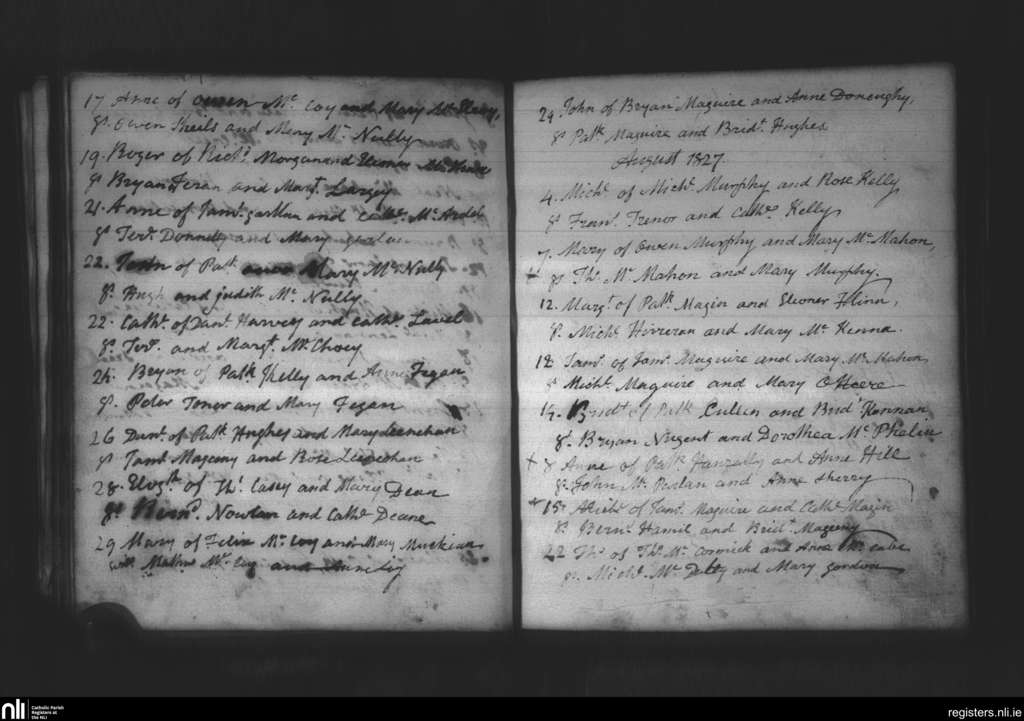 17 Anne of Owen Mc Coy and Mary
gs. Owen Sheils and Mary Mc Nully
19. Roger of Richd. Morgan and Eleoner
gs Bryan Feran and Margt. Largey
21. Anne of Jams. and Cathe. Mc Ardel
gs Terce. Donnelly and Mary
22. John of Patk. Mary Mc Nully
gs. Hugh and Judith Mc Nully
22. Cathe. of Danl. Harvey and Cathe. Lavel
gs. Terce. and Margt. Mc Choey
Bryan of Patk. Shelly and Anne Fegan
gs. Peter Toner and Mary Fegan
26 Danl. of Patk. Hughes and Mary Leenehan
gs Jams. Mageeny and Rose Leenehan
28. Elizth. of Ths. Casey and Mary Dean
gs. Nowlan and Cathe. Deane
29 Mary of Felix Mc Coy and Mary
Mc Coy and Anne
29 John of Bryan Maguire and Anne Donoughy,
gs Patk. Maguire and Bridt. Hughes
August 1827.
4. Michl. of Michl. Murphy and Rose Kelly
gs Frans. Trenor and Cathe. Kelly
7. Mary of Owen Murphy and Mary Mc Mahon,
+ gs Ths. Mc Mahon and Mary Murphy.
12. Margt. of Patk. Magin and Eleoner Flinn,
gs. Michl. and Mary Mc Kenna.
12 Jams. of Jams. Maguire and Mary Mc Mahon
gs Michl. Maguire and Mary O Heere
Bridt. of Patk. Cullen and Bridt. Hannan
gs. Bryan Nugent and Dorothea Mc Phelin
+ 8 Anne of Patk. and Anne Hill
gs. John Mc Parlan and Anne Sherry
+ 15 Michl. of Jams. Maguire and Cathe. Magin
gs. Bernd. Hamil and Bridt. Mageeny
22 Ths. of Ths. Mc Cormick and Anne Mc
gs. Michl. Mc and Mary Gordon
nli
Catholic Parish
Registers at
the NLI
registers.nli.ie